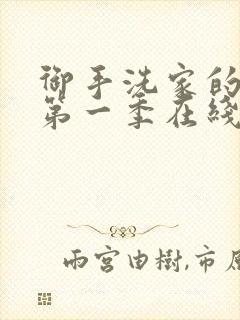 御手洗家的
第一季在綫
雨宫由樹,市原